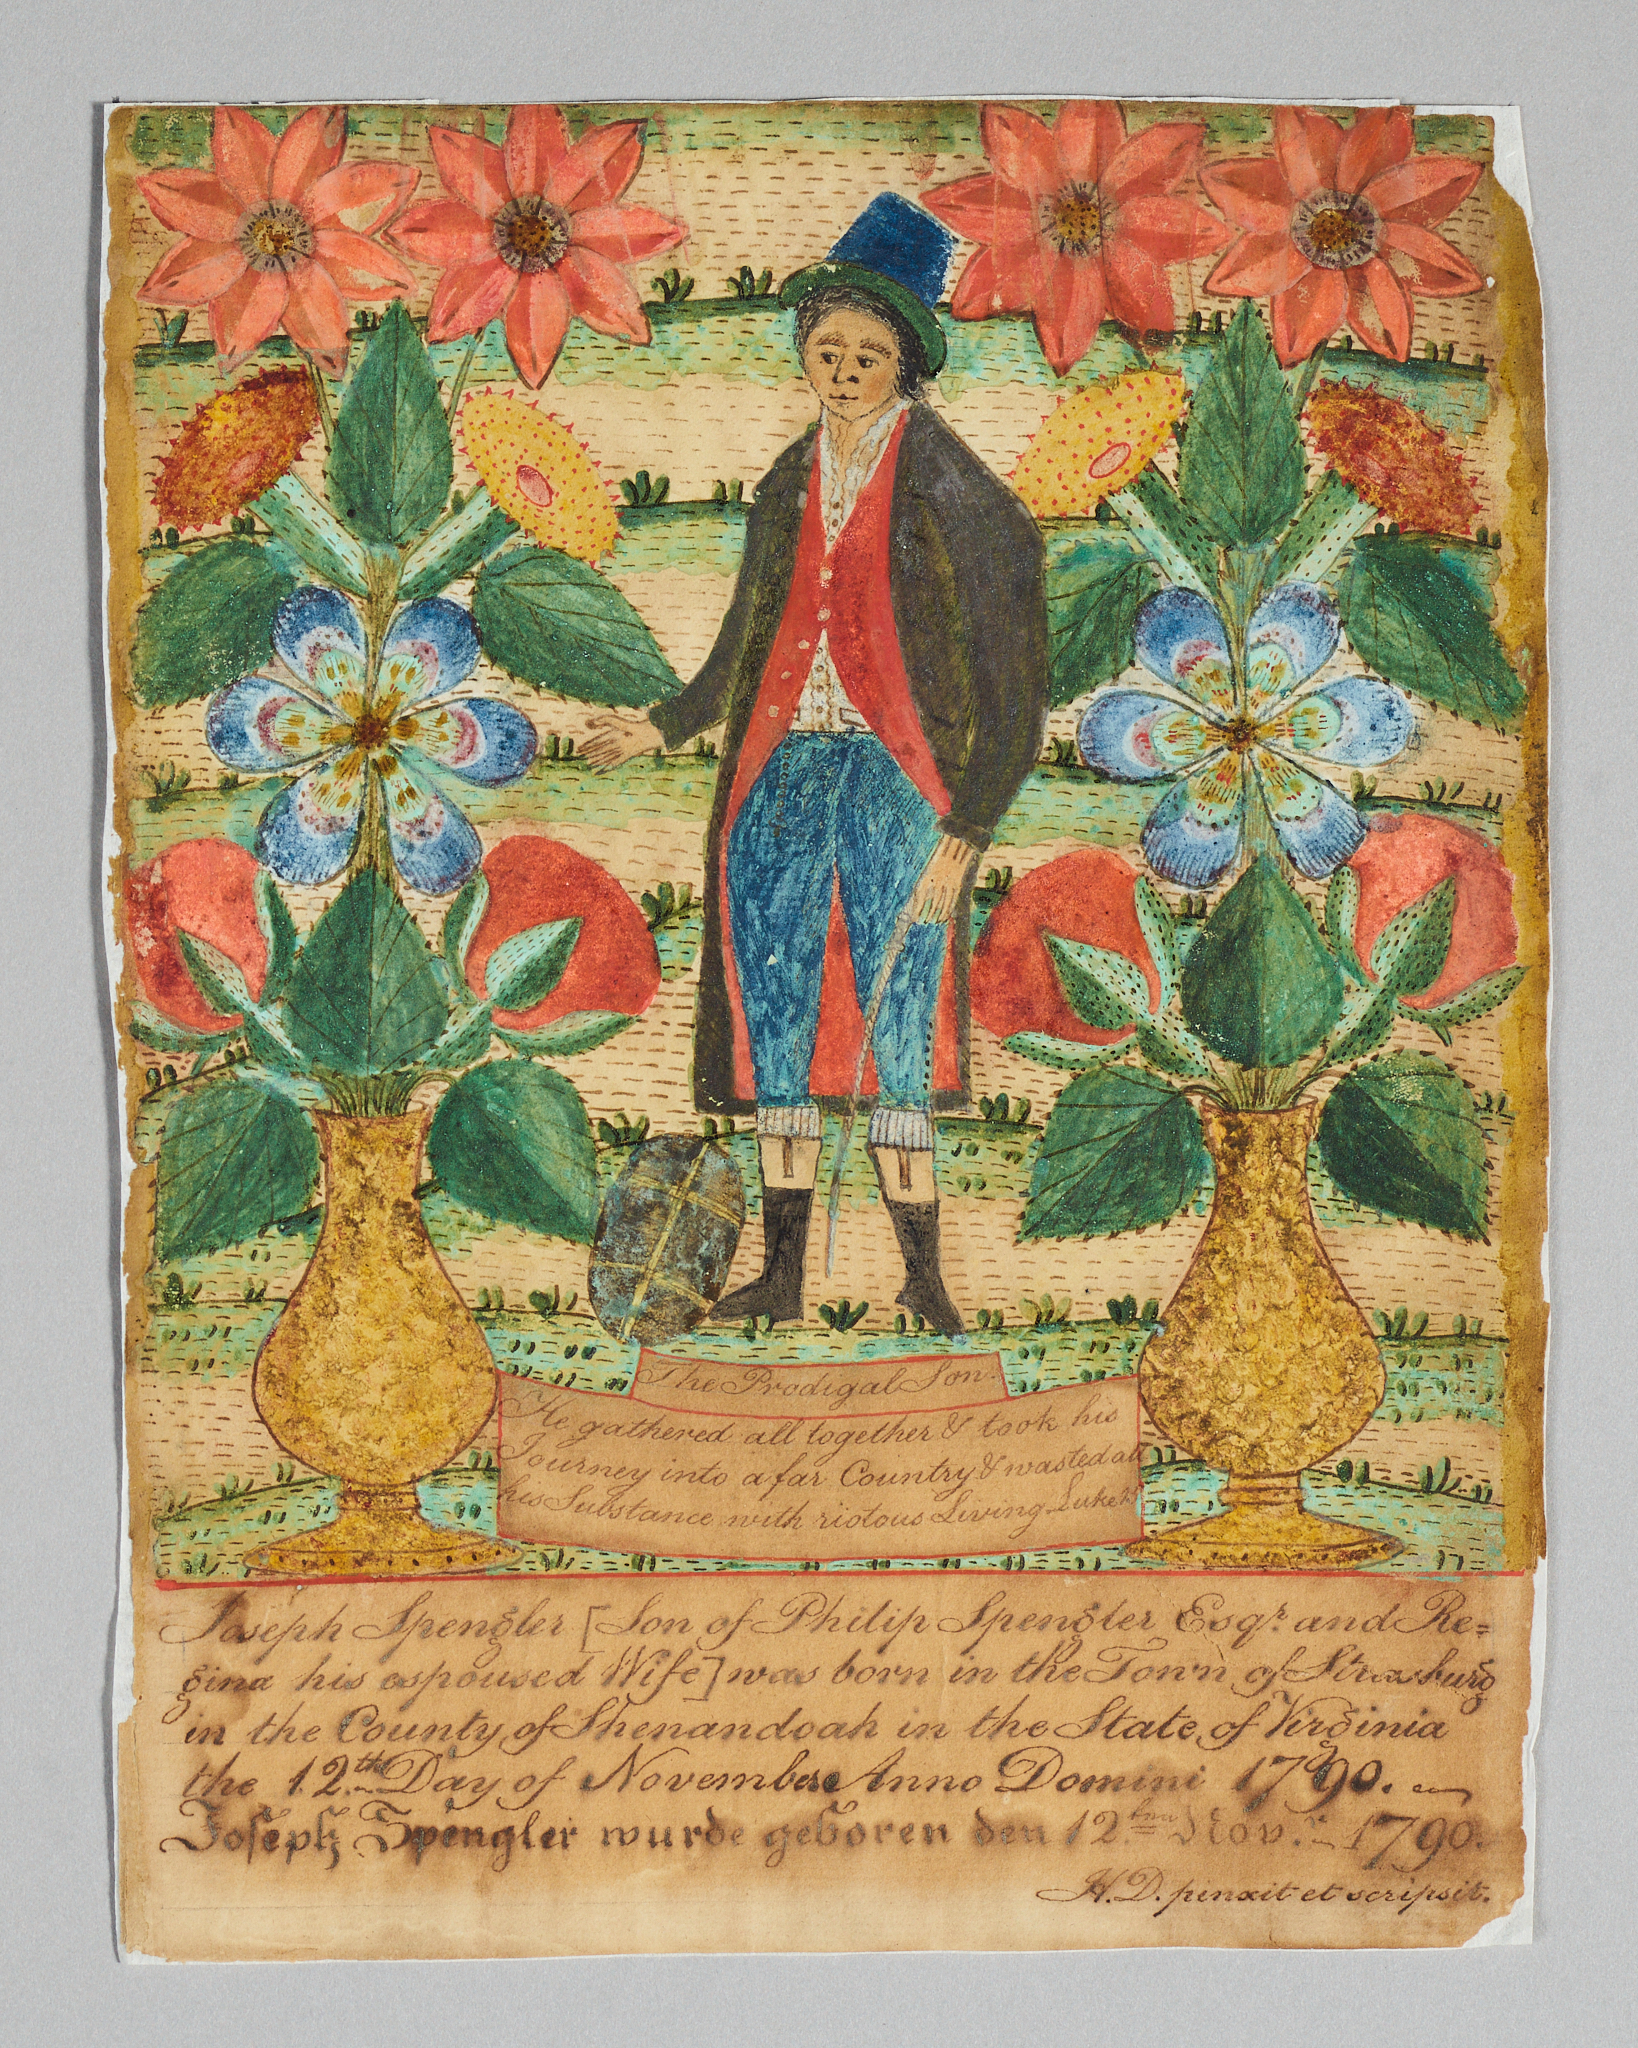 The Prodigal Son.
He gathered all together & took his
Journey into a far Country & wasted all
his Substance with riotous Living. Luke 15
Joseph Spengler [Son of Philip Spengler Esqr. and Re=
gina his espoused Wife] was born in the Town of Strasburg
in the County of Shenandoah in the State of Virginia
the 12th. Day of November Anno Domini 1790.
Joseph Spengler wurde geboren den 12ten Novr. 1790.
H. D. pinxit et scripsit.